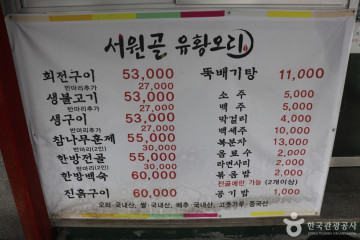 서원골 유황오리
회전구이 53,000
반마리추가 27,000
생불고기 53,000
반마리추가 27,000
생구이 53,000
반마리추가 27,000
참나무훈제 55,000
반마리(2인) 30,000
한방전골 55,000
반마리(2인) 30,000
한방백숙 60,000
진흙구이 60,000
뚝배기탕 11,000
소주 5,000
맥주 5,000
막걸리 4,000
백세주 10,000
복분자 13,000
음료수 2,000
라면사리 2,000
볶음밥 2,000
전골에만 가능 (2개이상)
공기밥 1,000
오리: 국내산, 쌀: 국내산, 배추: 국내산, 고춧가루: 중국산
한국관광공사